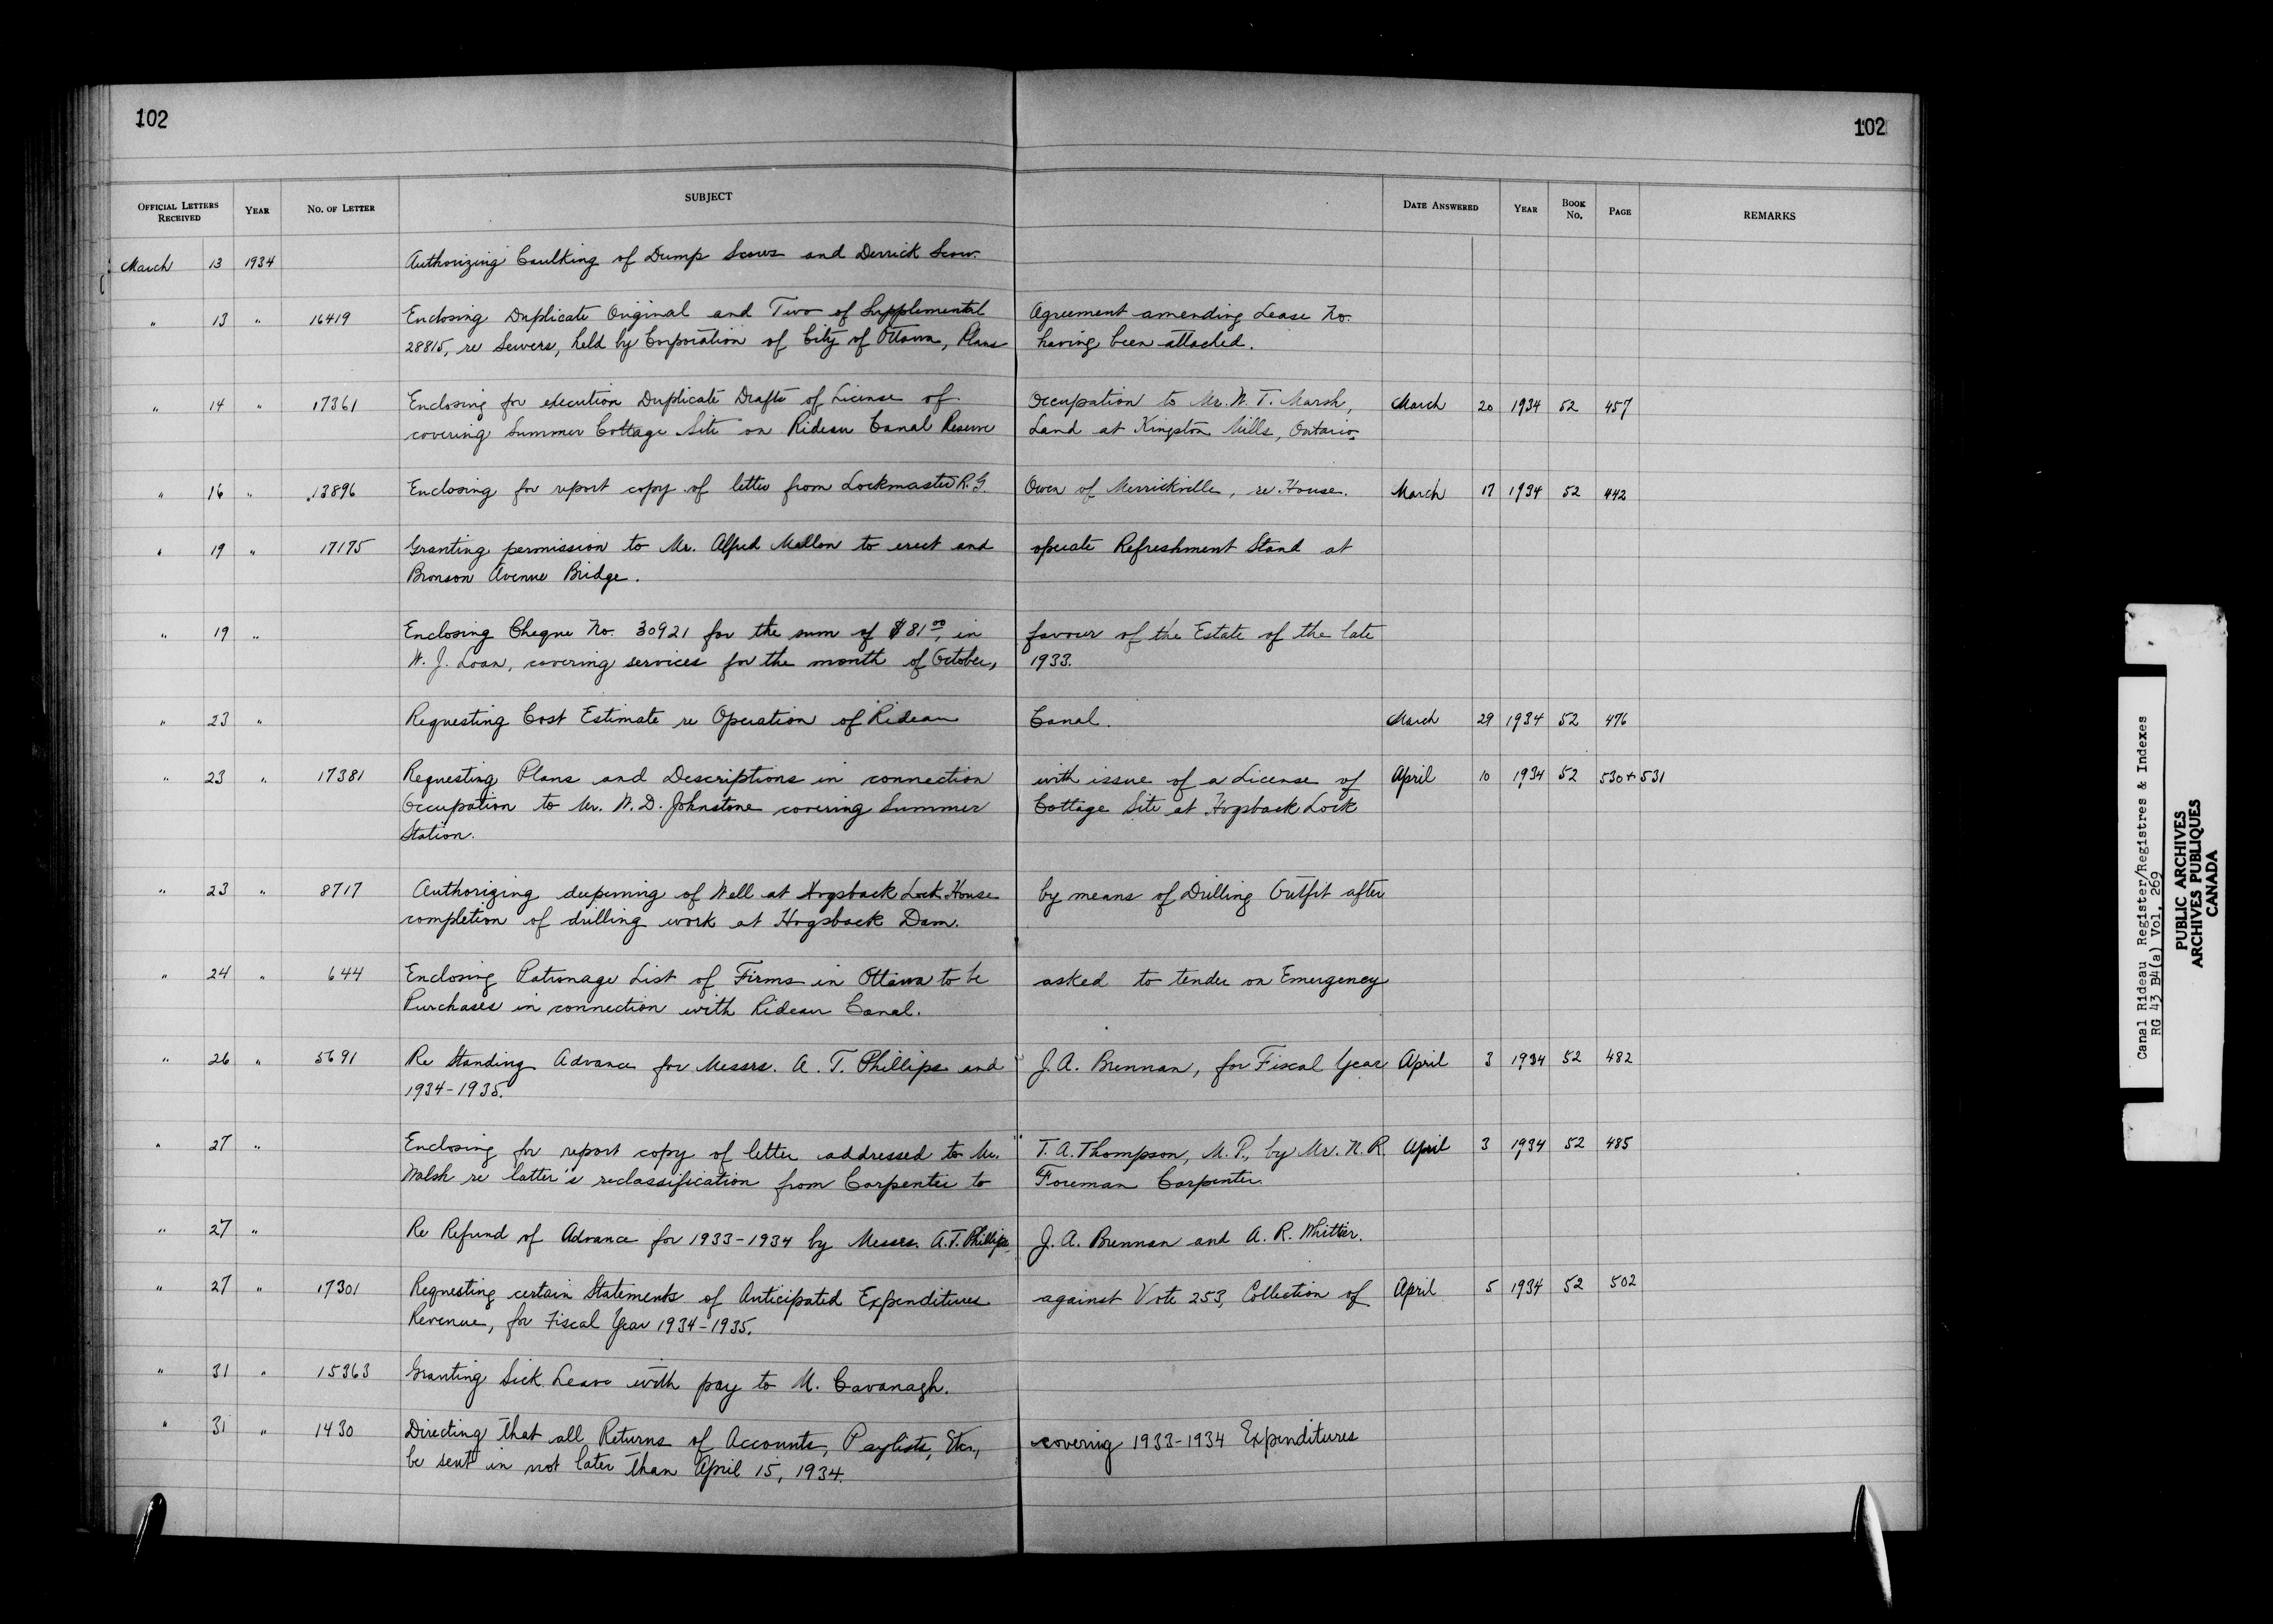 102
102
OFFICIAL LETTERS RECEIVED YEAR NO. OF LETTER SUBJECT DATE ANSWERED YEAR BOOK NO. PAGE REMARKS
March 13 1934 Authorizing Caulking of Dump Scows and Derrick Scow.
" 13 " 16419 Enclosing Duplicate Original and Two of Supplemental Agreement amending Lease No.
28815, re Sewers, held by Corporation of City of Ottawa, Plans having been attached.
" 14 " 17361 Enclosing for execution Duplicate Drafts of License of Occupation to Mr. W. T. Marsh, March 20 1934 52 457
covering Summer Cottage Site on Rideau Canal Reserve Land at Kingston Mills, Ontario.
" 16 " 13896 Enclosing for report copy of letter from Lockmaster R. G. Owen of Merrickville, re House. March 17 1934 52 442
" 19 " 17175 Granting permission to Mr. Alfred Mellon to erect and operate Refreshment Stand at
Bronson Avenue Bridge.
" 19 " Enclosing Cheque No. 30921 for the sum of $81.00, in favour of the Estate of the late
W. J. Loan, covering services for the month of October, 1933.
" 23 " Requesting Cost Estimate re Operation of Rideau Canal. March 29 1934 52 476
" 23 " 17381 Requesting Plans and Descriptions in connection with issue of a License of April 10 1934 52 530 + 531
Occupation to Mr. W. D. Johnstone covering Summer Cottage Site at Hogsback Lock
Station.
" 23 " 8717 Authorizing deepening of Well at Hogsback Lock House by means of Drilling Outfit after
completion of drilling work at Hogsback Dam.
" 24 " 644 Enclosing Patronage List of Firms in Ottawa to be asked to tender on Emergency
Purchases in connection with Rideau Canal.
" 26 " 5691 Re Standing Advance for Messrs. A. T. Phillips and J. A. Brennan, for Fiscal Year April 3 1934 52 482
1934-1935.
" 27 " Enclosing for report copy of letter addressed to Mr. T. A. Thompson, M. P., by Mr. N. R. April 3 1934 52 485
Walsh re latter's reclassification from Carpenter to Foreman Carpenter.
" 27 " Re Refund of Advance for 1933-1934 by Messrs. A. T. Phillips, J. A. Brennan and A. R. Whittier.
" 27 " 17301 Requesting certain Statements of Anticipated Expenditures against Vote 253, Collection of April 5 1934 52 502
Revenue, for Fiscal Year 1934-1935.
" 31 " 15363 Granting Sick Leave with pay to M. Cavanagh.
" 31 " 1430 Directing that all Returns of Accounts, Paylists, Etc., covering 1933-1934 Expenditures
be sent in not later than April 15, 1934.
Canal Rideau Register/Registres & Indexes
RG 43 B4(a) Vol. 269
PUBLIC ARCHIVES
ARCHIVES PUBLIQUES
CANADA